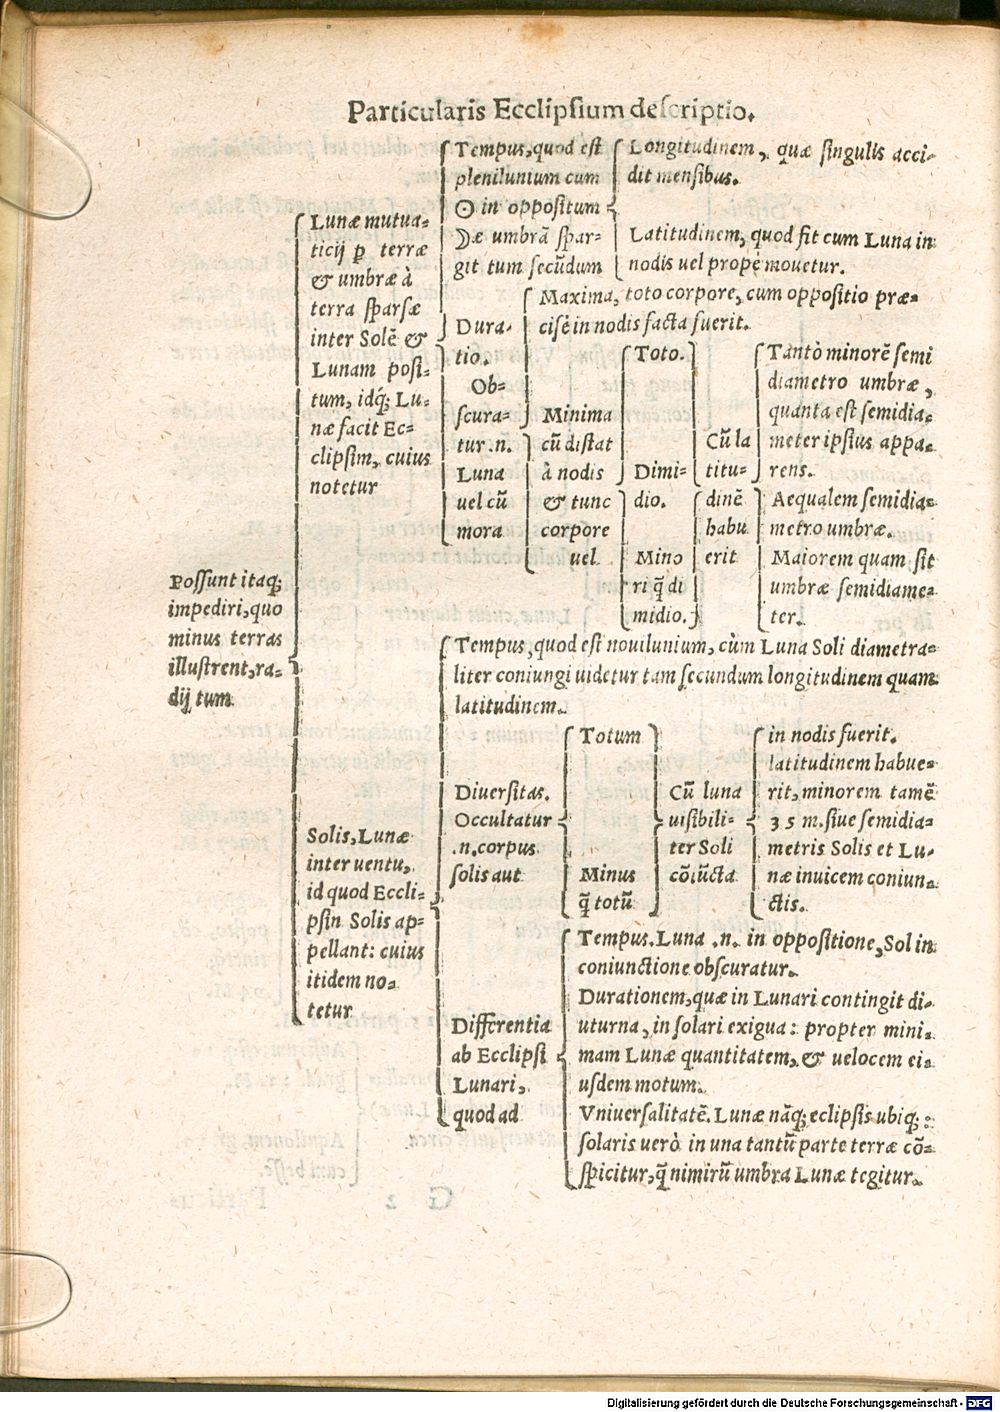 Particularis Ecclipsium descriptio.
Possunt itaq;
impediri, quo
minus terras
illustrent, ra-
dij tum
Lunæ mutua-
ticij p terræ
& umbræ à
terra sparsæ
inter Solē &
Lunam posi-
tum, idq́; Lu-
næ facit Ec-
clipsim, cuius
notetur
Tempus, quod est
plenilunium cum
☉ in oppositum
☽æ umbrā spar-
git tum secūdum
Longitudinem, quæ singulis acci-
dit mensibus.
Latitudinem, quod fit cum Luna in
nodis uel propè mouetur.
Dura-
tio.
Ob-
scura-
tur .n.
Luna
uel cū
mora
Maxima, toto corpore, cum oppositio præ-
cisè in nodis facta fuerit.
Minima
cū distat
à nodis
& tunc
corpore
uel
Toto.
Dimi-
dio.
Mino
ri q̄ di
midio.
Cū la
titu-
dinē
habu
erit
Tantò minorē semi
diametro umbræ,
quanta est semidia-
meter ipsius appa-
rens.
Aequalem semidia-
metro umbræ.
Maiorem quam sit
umbræ semidiame-
ter.
Solis, Lunæ
interuentu,
id quod Eccli-
psin Solis ap-
pellant: cuius
itidem no-
tetur
Tempus, quod est nouilunium, cùm Luna Soli diametra-
liter coniungi uidetur tam secundum longitudinem quam
latitudinem.
Diuersitas.
Occultatur
.n. corpus
solis aut
Totum
Minus
q̄ totū
Cū luna
uisibili-
ter Soli
cōiūcta
in nodis fuerit.
latitudinem habue-
rit, minorem tamē
35 m. siue semidia-
metris Solis et Lu-
næ inuicem coniun-
ctis.
Differentia
ab Ecclipsi
Lunari,
quod ad
Tempus. Luna .n. in oppositione, Sol in
coniunctione obscuratur.
Durationem, quæ in Lunari contingit di-
uturna, in solari exigua: propter mini-
mam Lunæ quantitatem, & uelocem ei-
usdem motum.
Vniuersalitatē. Lunæ nāq; eclipsis ubiq; :
solaris uerò in una tantū parte terræ cō-
spicitur, q̄ nimirū umbra Lunæ tegitur.
Digitalisierung gefördert durch die Deutsche Forschungsgemeinschaft - DFG